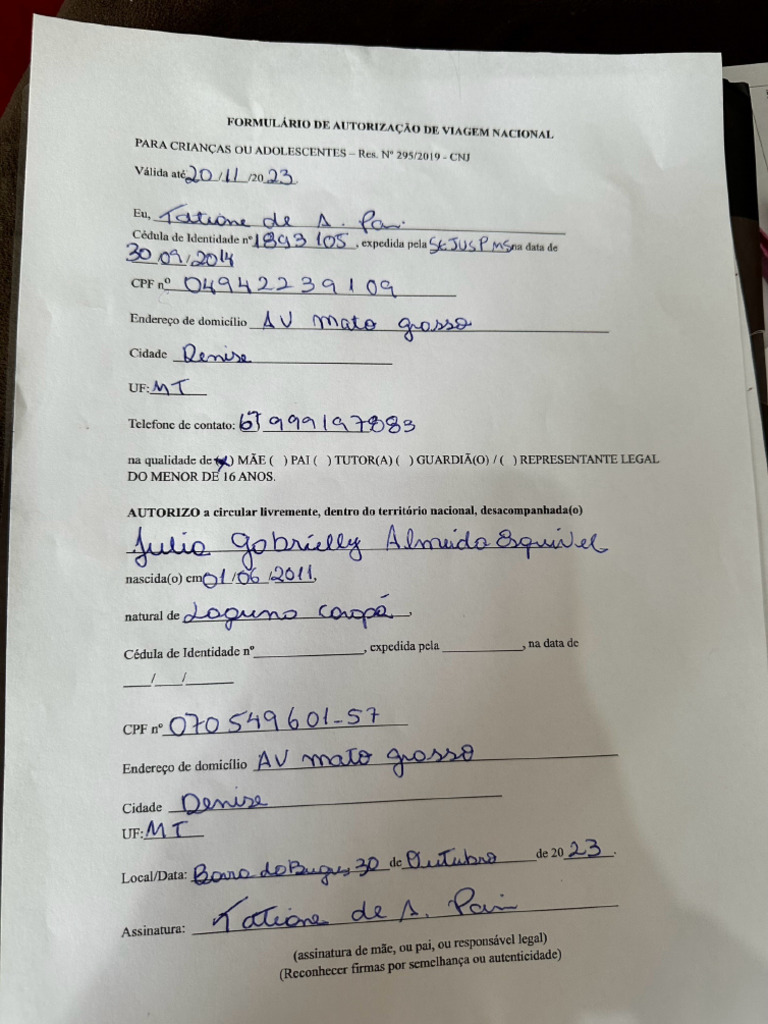 FORMULÁRIO DE AUTORIZAÇÃO DE VIAGEM NACIONAL
PARA CRIANÇAS OU ADOLESCENTES – Res. Nº 295/2019 - CNJ
Válida até 20/11/2023.
Eu, Tatiane de A. Pain
Cédula de Identidade nº 1893105, expedida pela SEJUSPMS na data de
30/09/2014
CPF nº 04942239109
Endereço de domicílio AV mato grosso
Cidade Denise
UF: MT
Telefone de contato: 67 999197883
na qualidade de (x) MÃE ( ) PAI ( ) TUTOR(A) ( ) GUARDIÃ(O) / ( ) REPRESENTANTE LEGAL
DO MENOR DE 16 ANOS.
AUTORIZO a circular livremente, dentro do território nacional, desacompanhada(o)
Julia Gabrielly Almeida Esquivel
nascida(o) em 01/06/2011,
natural de Laguna Carapã,
Cédula de Identidade nº____________, expedida pela ____________, na data de
___/___/_____
CPF nº 070549601-57
Endereço de domicílio AV mato grosso
Cidade Denise
UF: MT
Local/Data: Barra do Bugres, 30 de Outubro de 2023.
Assinatura: Tatiane de A. Pain
(assinatura de mãe, ou pai, ou responsável legal)
(Reconhecer firmas por semelhança ou autenticidade)